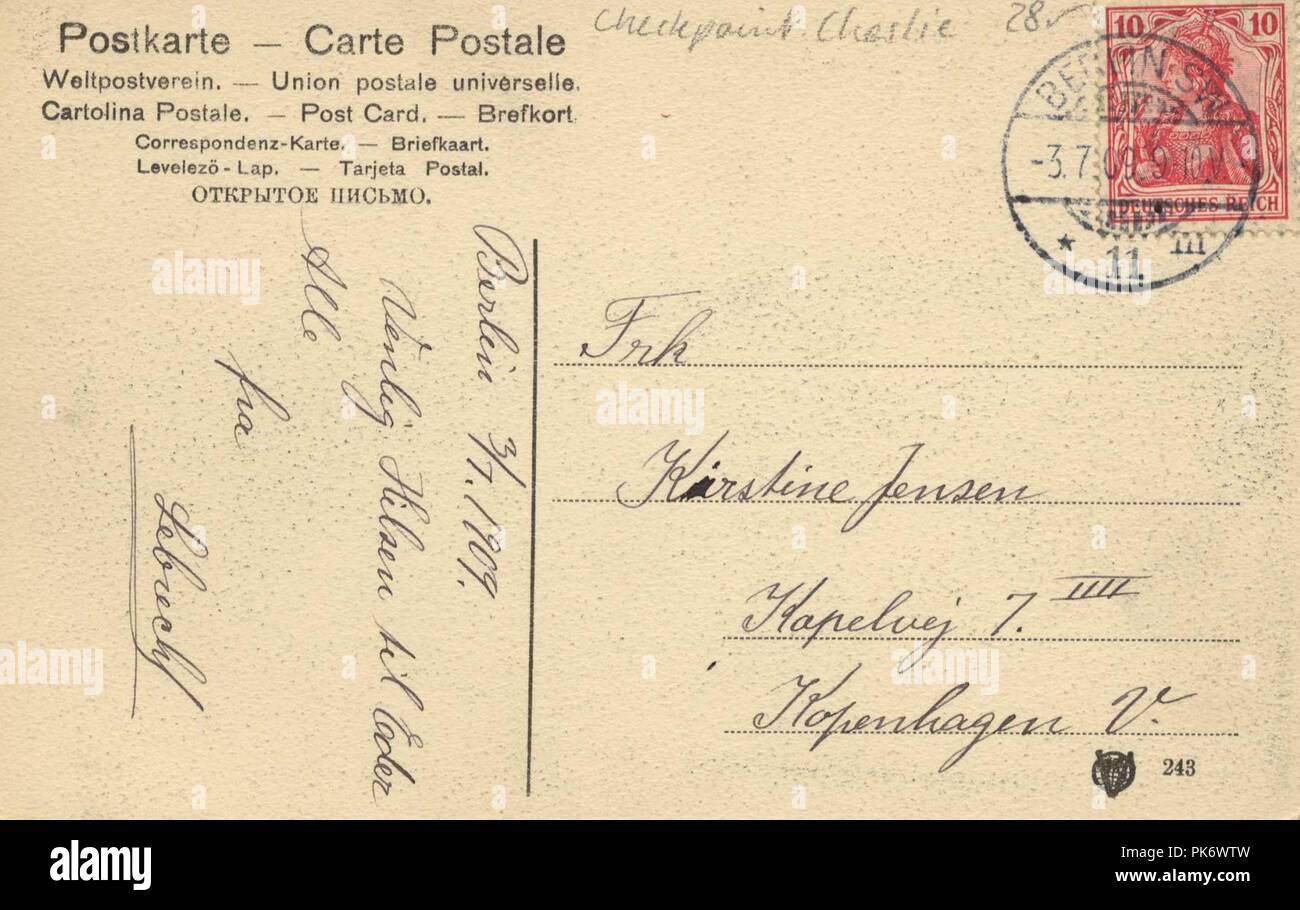 Postkarte — Carte Postale
Weltpostverein. — Union postale universelle.
Cartolina Postale. — Post Card. — Brefkort.
Correspondenz-Karte. — Briefkaart.
Levelező-Lap. — Tarjeta Postal.
ОТКРЫТОЕ ПИСЬМО.
Checkpoint Charlie 28.-
10 10
DEUTSCHES REICH
BERLIN SW
-3.7.09.9-10.V
* 11 m
Berlin 3/7. 1909.
Venlig Hilsen til Eder
Alle
fra
Frk
Kirstine Jensen
Kapelvej 7. IIII
Kopenhagen V.
243
alamy
Image ID: PK6WTW
www.alamy.com